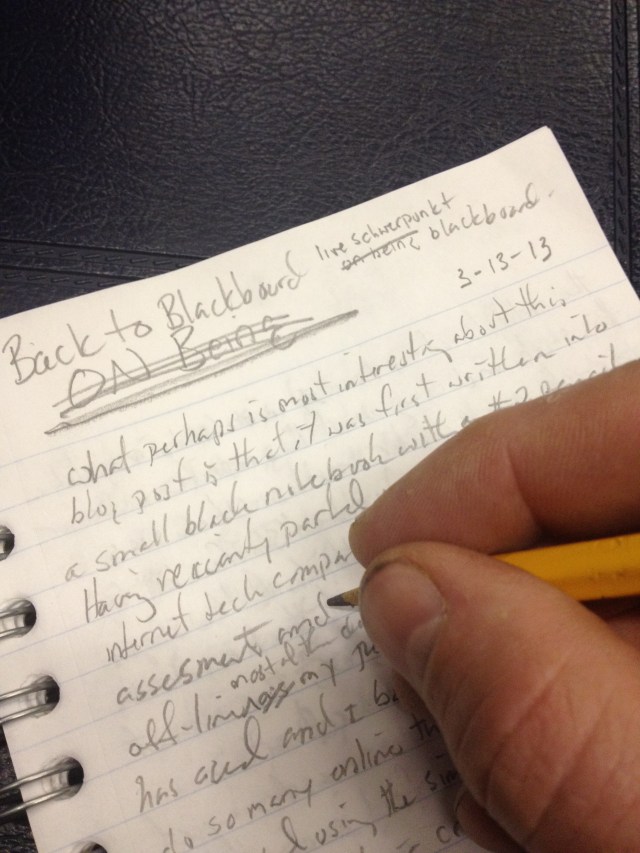 Back to Blackboard
live schwerpunkt
on being blackboard.
ON Being
3-13-13
what perhaps is most interesting about this
blog post is that it was first written into
a small black notebook with a #2 pencil
Having recently parted
internet tech compa
assesment and
most of the
off-line my
has aced and I
do so many online
using the